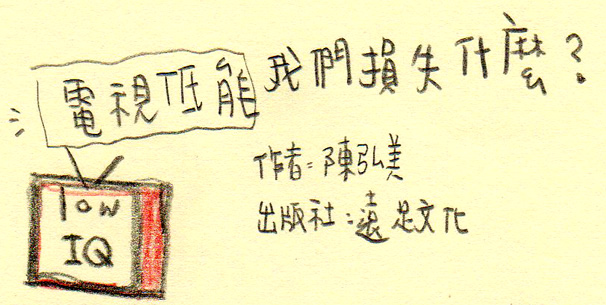 電視低能我們損失什麼？
作者：陳弘美
出版社：遠足文化
low
IQ